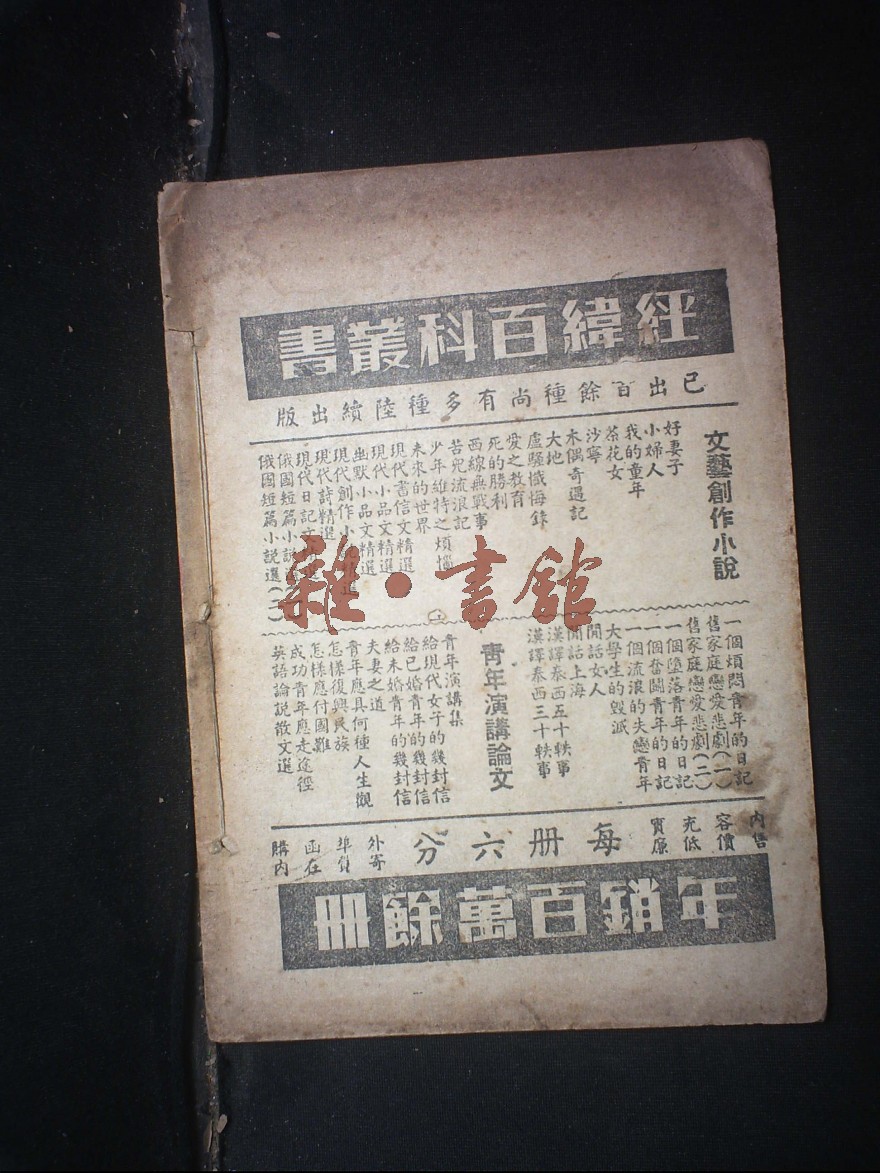 經緯百科叢書
已出百餘種尚有多種陸續出版
文藝創作小說
好妻子
小婦人
我的童年
茶花女
沙寧
木偶奇遇記
大地
盧騷懺悔錄
愛之教育
死的勝利
西線無戰事
苦兒流浪記
少年維特之煩惱
未來的世界
現代書信文精選
現代小品文精選
幽默小品文精選
現代創作小選
現代詩精選
現代日記文選
俄國短篇小說
俄國短篇小說選(二)
一個煩悶青年的日記
舊家庭戀愛悲劇(一)
舊家庭戀愛悲劇(二)
一個墮落青年的日記
一個奮鬪青年的日記
一個流浪的失戀青年
大學生的毀滅
閒話女人
閒話上海
漢譯泰西五十軼事
漢譯泰西三十軼事
青年演講論文
青年演講集
給現代女子的幾封信
給已婚青年的幾封信
給未婚青年的幾封信
夫妻之道
青年應具何種人生觀
怎樣復興民族
怎樣應付國難
成功青年應走途徑
英語論說散文選
內容充實
售價低廉
每册六分
外埠函購
寄費在內
年銷百萬餘冊
雜·書館